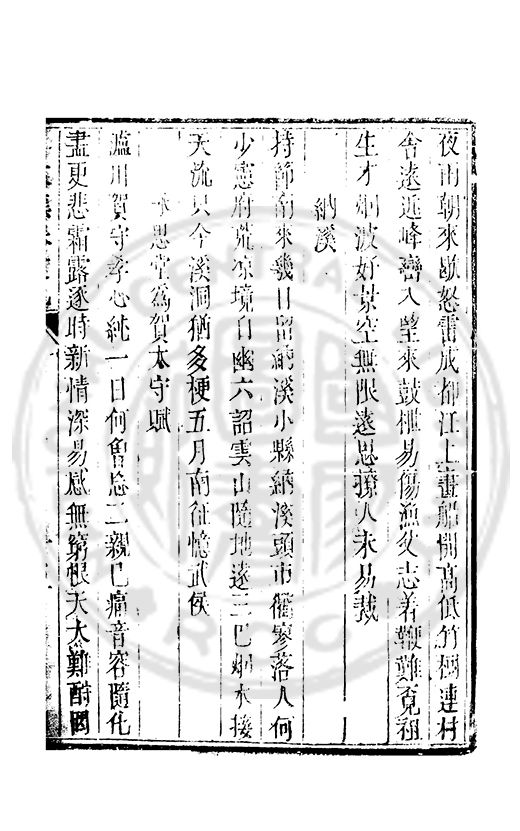 夜雨朝來歇怒雷成都江上畫船開高低竹樹連村
舍遠近峰巒入望來鼓枻易傷漁父志着鞭難覓祖
生才烟波好景空無限遠思撩人未易裁
納溪
持節南來幾日留納溪小縣納溪頭市衢寥落人何
少憲府荒凉境自幽六詔雲山隨地遠三巴烟水接
天流只今溪洞猶多梗五月南征憶武侯
永思堂為賀太守賦
瀘川賀守孝心純一日何曾忘二親已痛音容隨化
盡更悲霜露逐時新情深易感無窮恨天大難酧罔